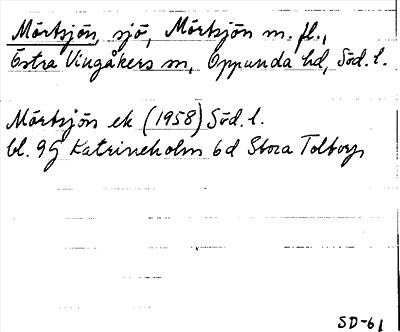 Mörtsjön, sjö, Mörtsjön m. fl.,
Östra Vingåkers sn, Oppunda hd, Söd. l.
Mörtsjön ek (1958) Söd. l.
bl. 9G Katrineholm 6d Stora Tolborg
SD-61